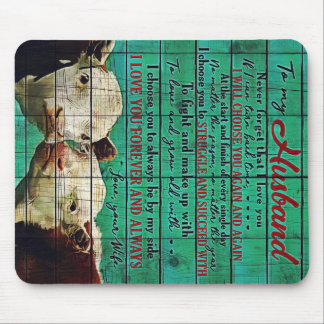 To my Husband
Never forget that I love you
If I can turn back time, ....
YOU AGAIN
At the start and finish of every single day
No matter the season, no matter the year
I choose you to STRUGGLE AND SUCCEED WITH
To fight and make up with
To love and grow old with ....
I choose you to always be by my side
I LOVE YOU FOREVER AND ALWAYS
Love, your Wife.